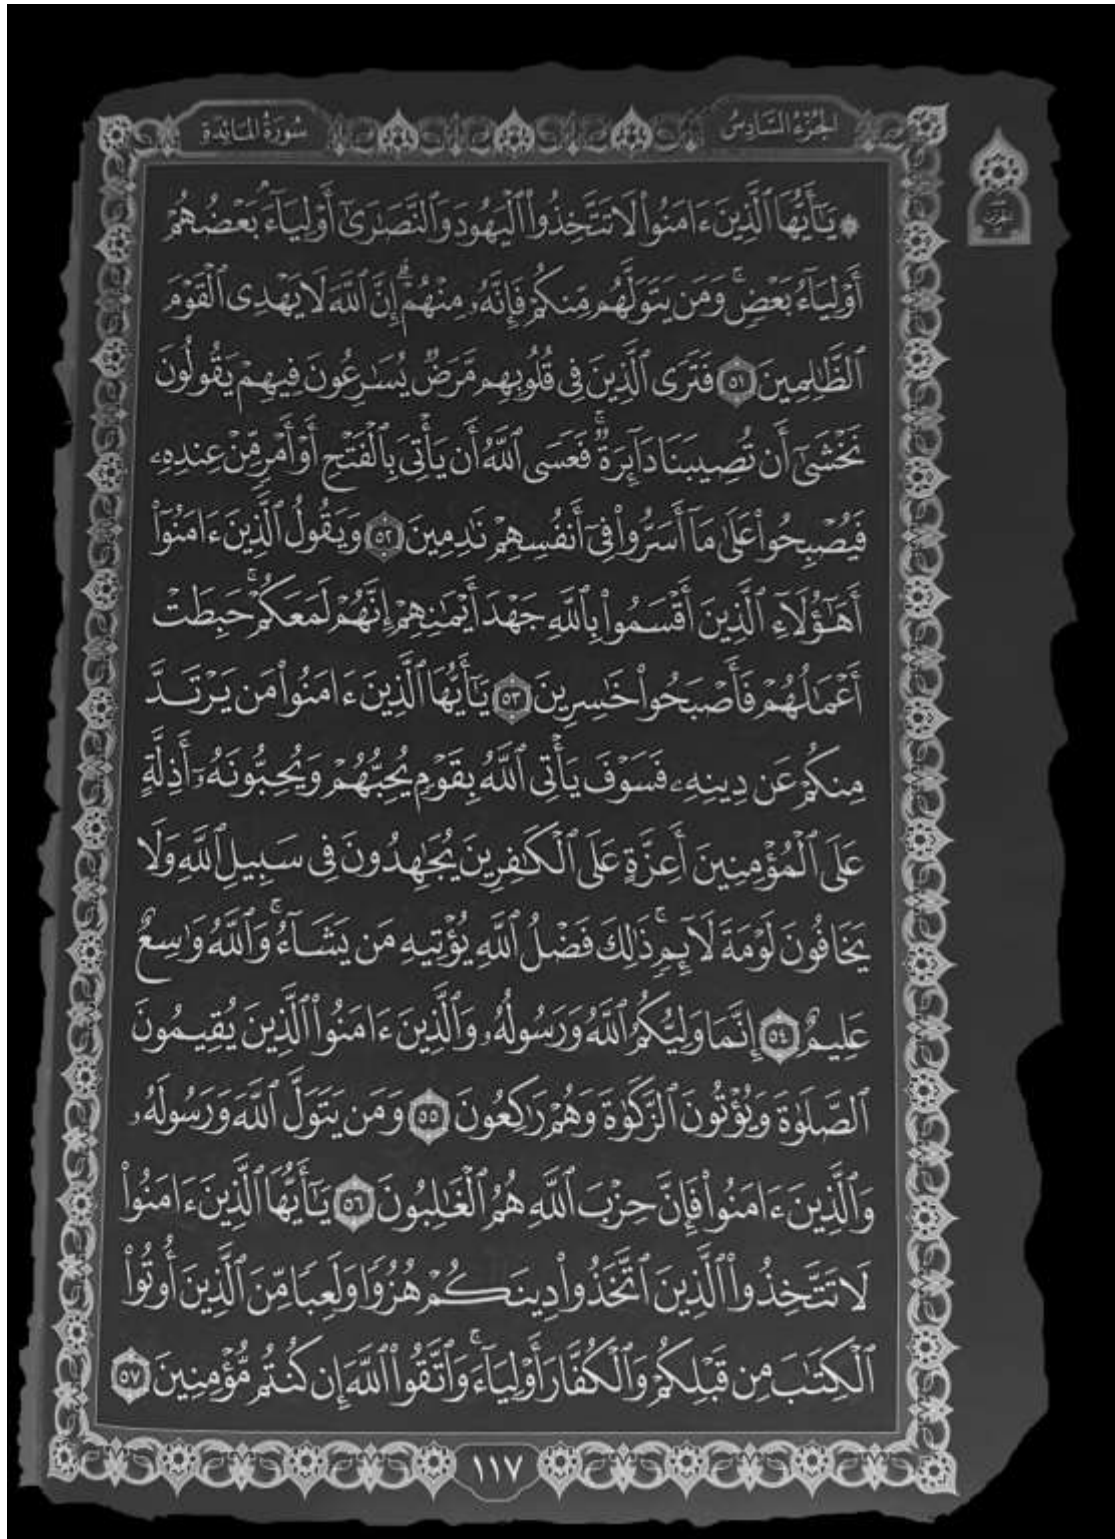 الجزء السادس
سورة المائدة
۞ يَٰٓأَيُّهَا ٱلَّذِينَ ءَامَنُوا۟ لَا تَتَّخِذُوا۟ ٱلْيَهُودَ وَٱلنَّصَٰرَىٰٓ أَوْلِيَآءَ ۘ بَعْضُهُمْ
أَوْلِيَآءُ بَعْضٍ ۚ وَمَن يَتَوَلَّهُم مِّنكُمْ فَإِنَّهُۥ مِنْهُمْ ۗ إِنَّ ٱللَّهَ لَا يَهْدِى ٱلْقَوْمَ
ٱلظَّٰلِمِينَ ٥١ فَتَرَى ٱلَّذِينَ فِى قُلُوبِهِم مَّرَضٌ يُسَٰرِعُونَ فِيهِمْ يَقُولُونَ
نَخْشَىٰٓ أَن تُصِيبَنَا دَآئِرَةٌ ۚ فَعَسَى ٱللَّهُ أَن يَأْتِىَ بِٱلْفَتْحِ أَوْ أَمْرٍ مِّنْ عِندِهِۦ
فَيُصْبِحُوا۟ عَلَىٰ مَآ أَسَرُّوا۟ فِىٓ أَنفُسِهِمْ نَٰدِمِينَ ٥٢ وَيَقُولُ ٱلَّذِينَ ءَامَنُوٓا۟
أَهَٰٓؤُلَآءِ ٱلَّذِينَ أَقْسَمُوا۟ بِٱللَّهِ جَهْدَ أَيْمَٰنِهِمْ إِنَّهُمْ لَمَعَكُمْ ۚ حَبِطَتْ
أَعْمَٰلُهُمْ فَأَصْبَحُوا۟ خَٰسِرِينَ ٥٣ يَٰٓأَيُّهَا ٱلَّذِينَ ءَامَنُوا۟ مَن يَرْتَدَّ
مِنكُمْ عَن دِينِهِۦ فَسَوْفَ يَأْتِى ٱللَّهُ بِقَوْمٍ يُحِبُّهُمْ وَيُحِبُّونَهُۥٓ أَذِلَّةٍ
عَلَى ٱلْمُؤْمِنِينَ أَعِزَّةٍ عَلَى ٱلْكَٰفِرِينَ يُجَٰهِدُونَ فِى سَبِيلِ ٱللَّهِ وَلَا
يَخَافُونَ لَوْمَةَ لَآئِمٍ ۚ ذَٰلِكَ فَضْلُ ٱللَّهِ يُؤْتِيهِ مَن يَشَآءُ ۚ وَٱللَّهُ وَٰسِعٌ
عَلِيمٌ ٥٤ إِنَّمَا وَلِيُّكُمُ ٱللَّهُ وَرَسُولُهُۥ وَٱلَّذِينَ ءَامَنُوا۟ ٱلَّذِينَ يُقِيمُونَ
ٱلصَّلَوٰةَ وَيُؤْتُونَ ٱلزَّكَوٰةَ وَهُمْ رَٰكِعُونَ ٥٥ وَمَن يَتَوَلَّ ٱللَّهَ وَرَسُولَهُۥ
وَٱلَّذِينَ ءَامَنُوا۟ فَإِنَّ حِزْبَ ٱللَّهِ هُمُ ٱلْغَٰلِبُونَ ٥٦ يَٰٓأَيُّهَا ٱلَّذِينَ ءَامَنُوا۟
لَا تَتَّخِذُوا۟ ٱلَّذِينَ ٱتَّخَذُوا۟ دِينَكُمْ هُزُوًا وَلَعِبًا مِّنَ ٱلَّذِينَ أُوتُوا۟
ٱلْكِتَٰبَ مِن قَبْلِكُمْ وَٱلْكُفَّارَ أَوْلِيَآءَ ۚ وَٱتَّقُوا۟ ٱللَّهَ إِن كُنتُم مُّؤْمِنِينَ ٥٧
١١٧